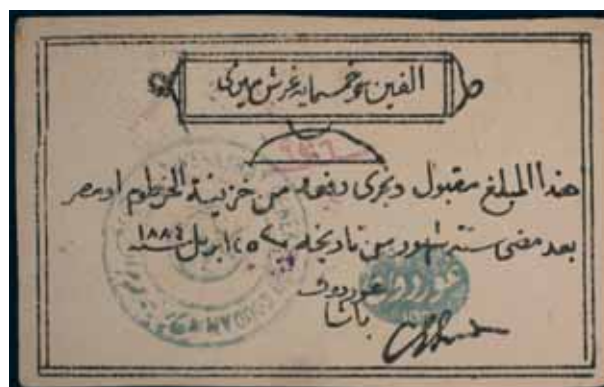 الفين وخمسمايه غرش ميرى
هذا المبلغ مقبول ويجرى دفعه من خزينة الخرطوم او مصر
بعد مضى ستة شهور من تاريخه ٢٥ ابريل سنة ١٨٨٤
غوردون
باشا